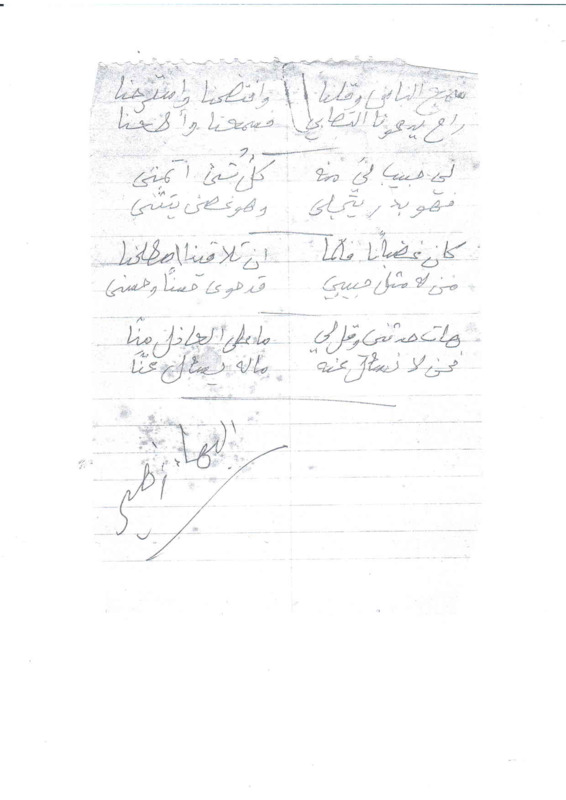 سمع الناس وقلنا وافتضحنا واسترحنا
راح يدعونا التصابي فسمعنا وأطعنا
لي حبيب لي منه كل شئ أتمنى
فهو بدر يتجلى وهو غصن يتثنى
كان غضبانا فلما ان تلاقينا اصطلحنا
من له مثل حبيبي قد حوى حسناً وحسنى
هات حدثني وقل لي ما على العاذل منّا
نحن لا نسأل عنه ماله يسأل عنّا
البهاء